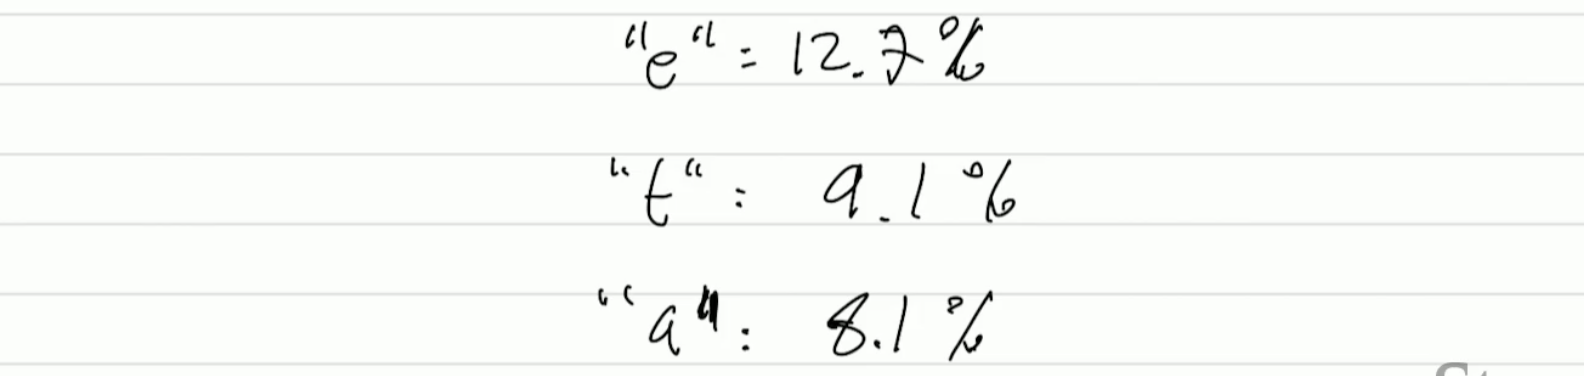 "e" = 12.7%
"t" : 9.1%
"a" : 8.1%